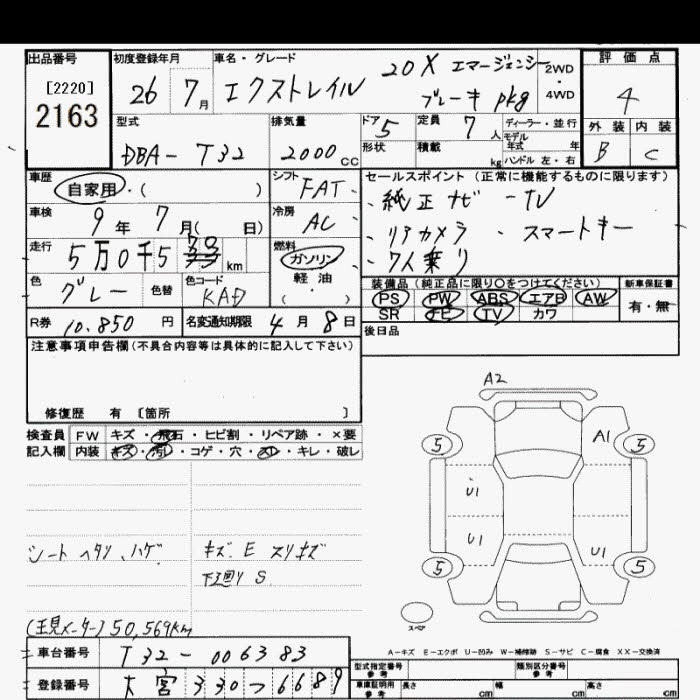 出品番号 初度登録年月 車名・グレード 評価点
[2220] 26 7月 エクストレイル 20X エマージェンシー 2WD
2163 ブレーキ pkg ・4WD 4
型式 排気量 ドア 定員 ディーラー・並行 外装 内装
DBA-T32 2000cc 5 7人 モデル年式 年 B C
形状 積載 kg ハンドル 左・右
車歴 自家用・( ) シフト FAT セールスポイント (正常に機能するものに限ります)
車検 9年7月( 日) 冷房 AC ・純正ナビ-TV
走行 5万0千5 km 燃料 ガソリン ・リアカメラ ・スマートキー
軽油 ・( ) ・7人乗り
色 グレー 色替 色コード KAD 装備品(純正品に限り○をつけてください) 新車保証書
PS PW ABS エアB AW 有・無
R券 10.850円 名変通知期限 4月8日 SR TV カワ
注意事項申告欄(不具合内容等は具体的に記入して下さい) 後日品
修復歴 有 [箇所 ]
検査員 FW キズ・飛石・ヒビ割・リペア跡・×要
記入欄 内装 キズ・汚レ・コゲ・穴・スレ・キレ・破レ
シート ヘタリ、ハゲ キズ、E スリキズ
下廻り S
(現メーター) 50,569km
A2
5 A1 5
U1
U1 U1
5 5
スペア
A-キズ E-エクボ U-凹み W-補修跡 S-サビ C-腐食 XX-交換済
車台番号 T32-006383
登録番号 大宮 330 つ 6689
型式指定番号 参考 類別区分番号 参考
車庫証明用 参考 長さ cm 幅 cm 高さ cm